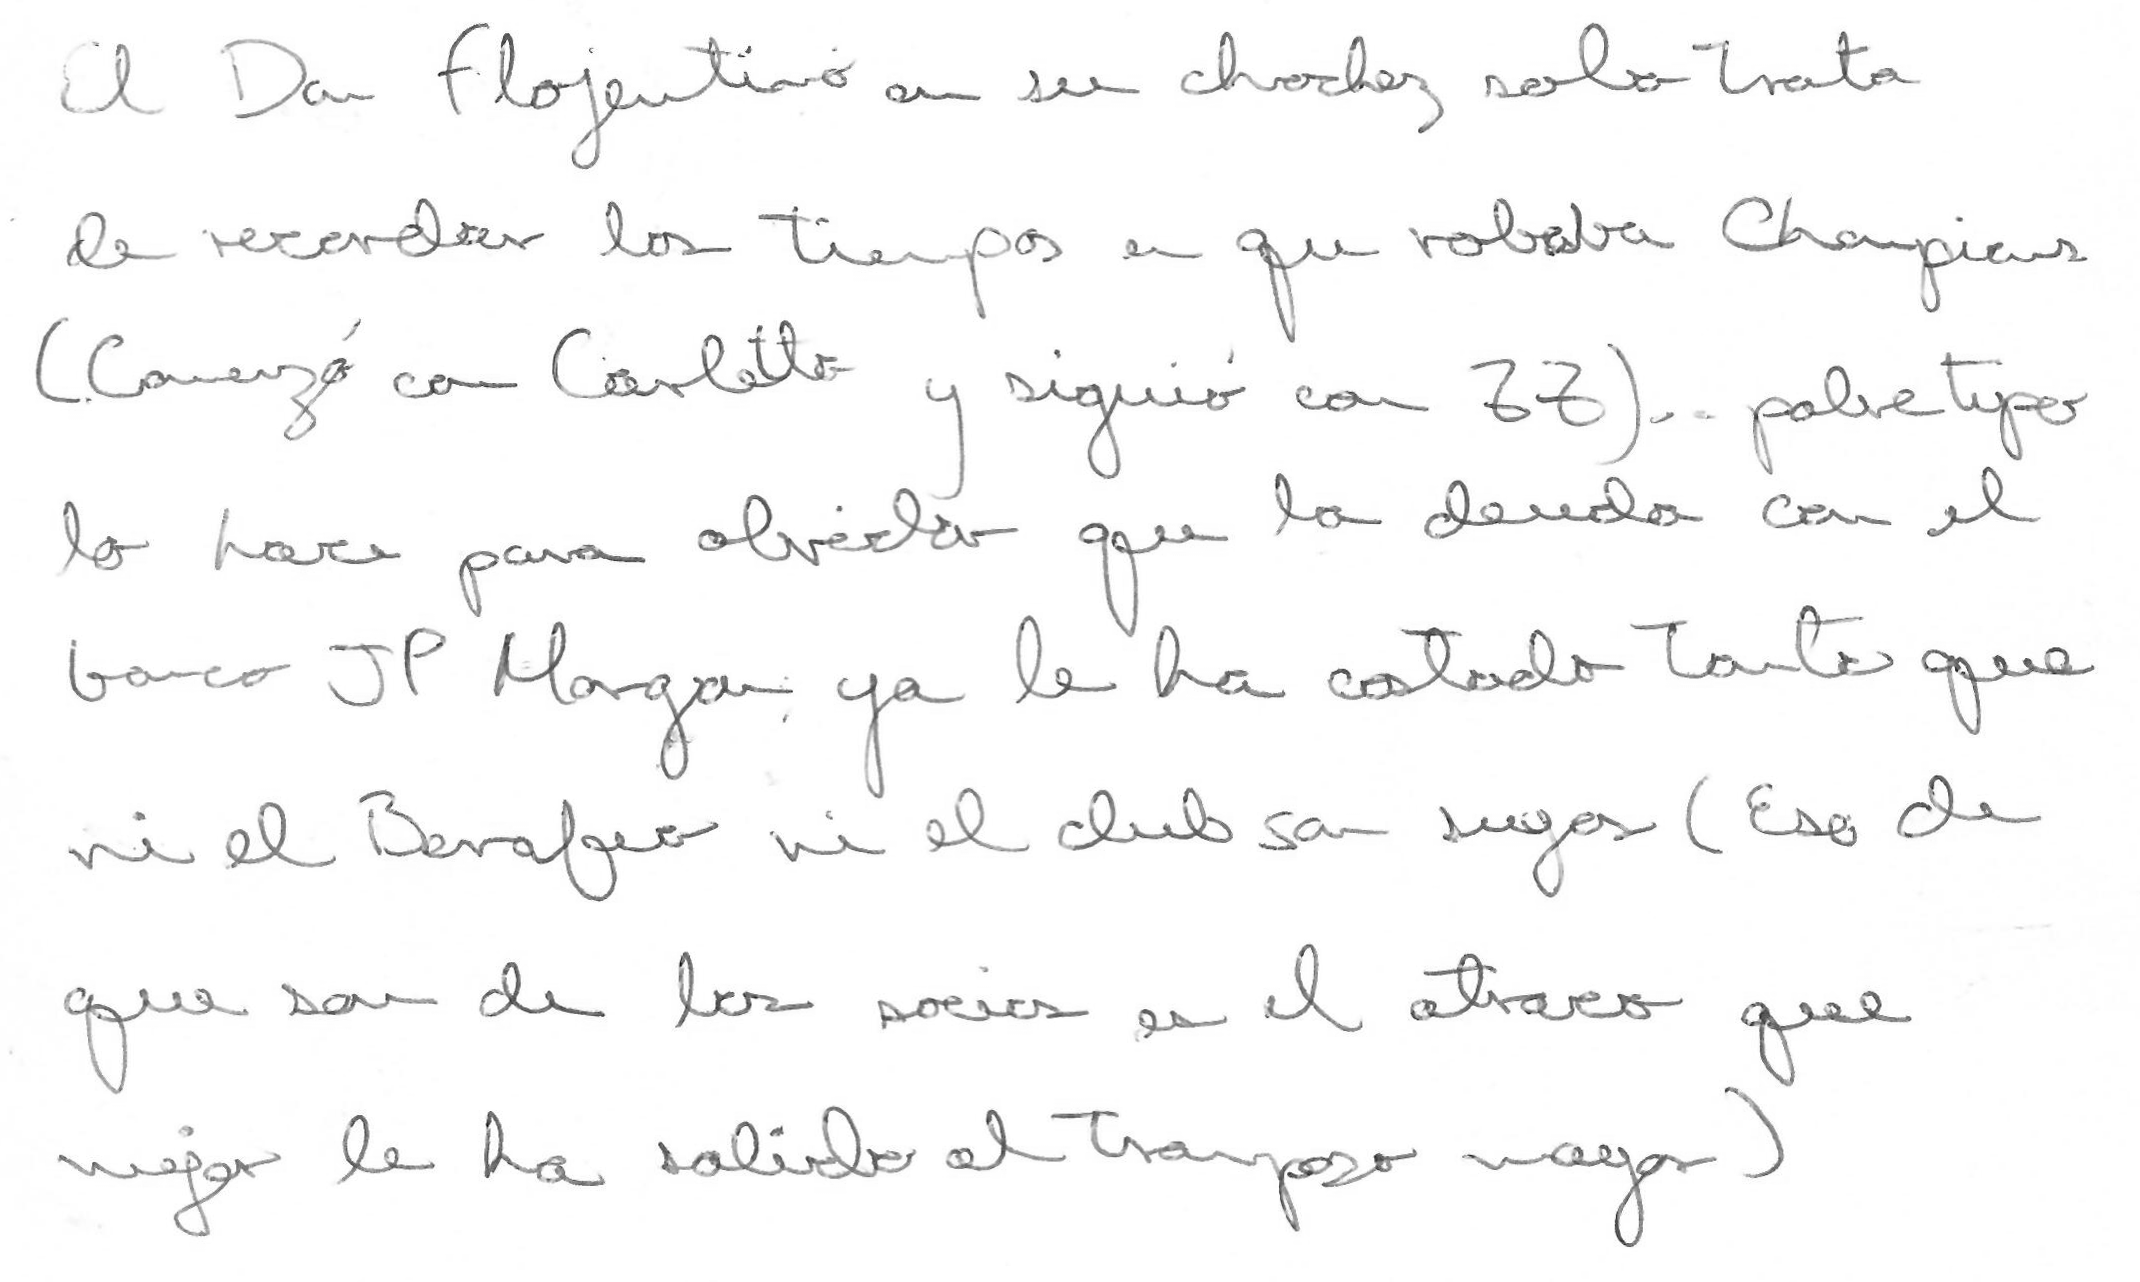 El Don Flojentino en su chochez solo trata
de recordar los tiempos en que robaba Champions
(Comenzó con Carletto y siguió con ZZ)... pobre tipo
lo hace para olvidar que la deuda con el
banco JP Morgan, ya le ha costado tanto que
ni el Bernabeu ni el club son suyos (Eso de
que son de los socios es el atraco que
mejor le ha salido al tramposo mayor)